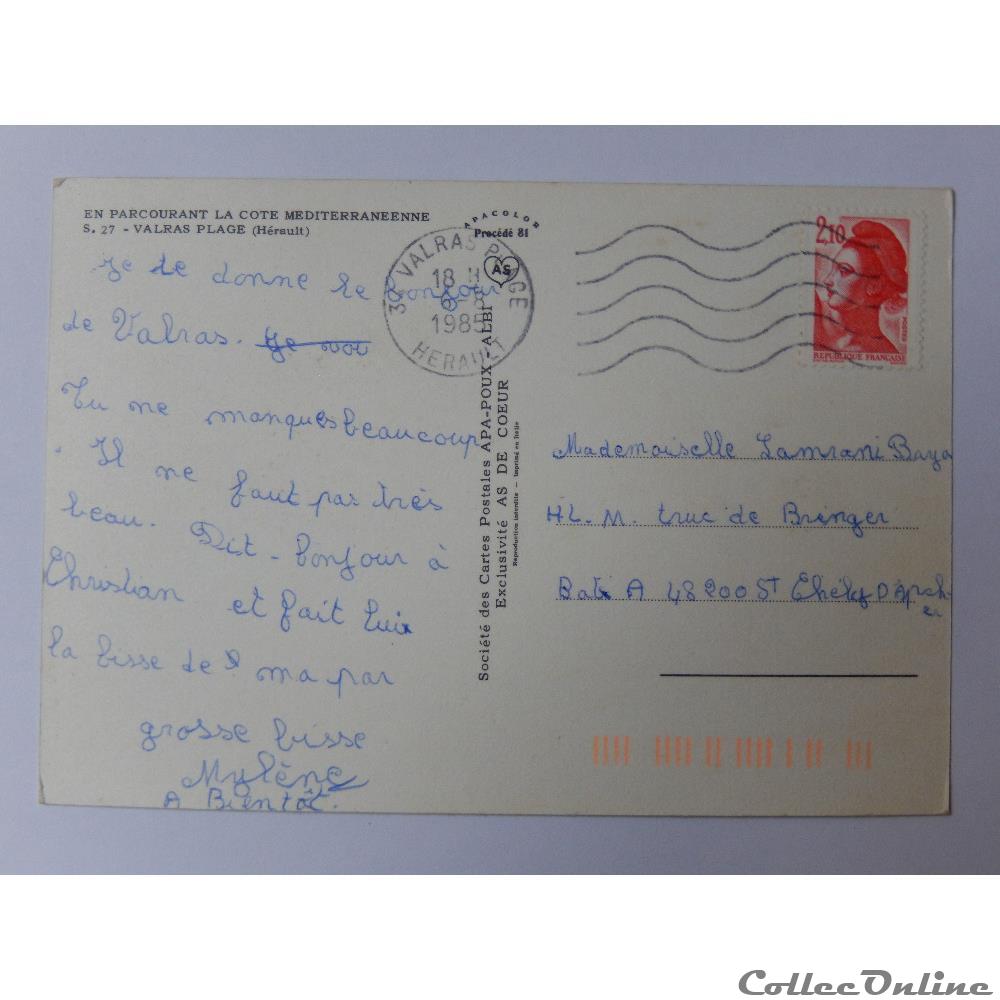 EN PARCOURANT LA COTE MEDITERRANEENNE
S. 27 - VALRAS PLAGE (Hérault)
Je te donne le bonjour
de Valras. Je voi
Tu me manques beaucoup
. Il ne faut pas très
beau. Dit - bonjour à
Christian et fait lui
la bisse de ma par
grosse bisse
Mylène
A Bientôt.
APACOLOR
Procédé 81
AS
Société des Cartes Postales APA-POUX - ALBI
Exclusivité AS DE COEUR
Reproduction interdite - Imprimé en Italie
VALRAS PLAGE
18 H
6-8
1985
HERAULT
2,10
REPUBLIQUE FRANÇAISE
Mademoiselle Lamrani Baya
H.L.M. truc de Bringer
Bat A 48200 ST Chely D'Apch
er
CollecOnline